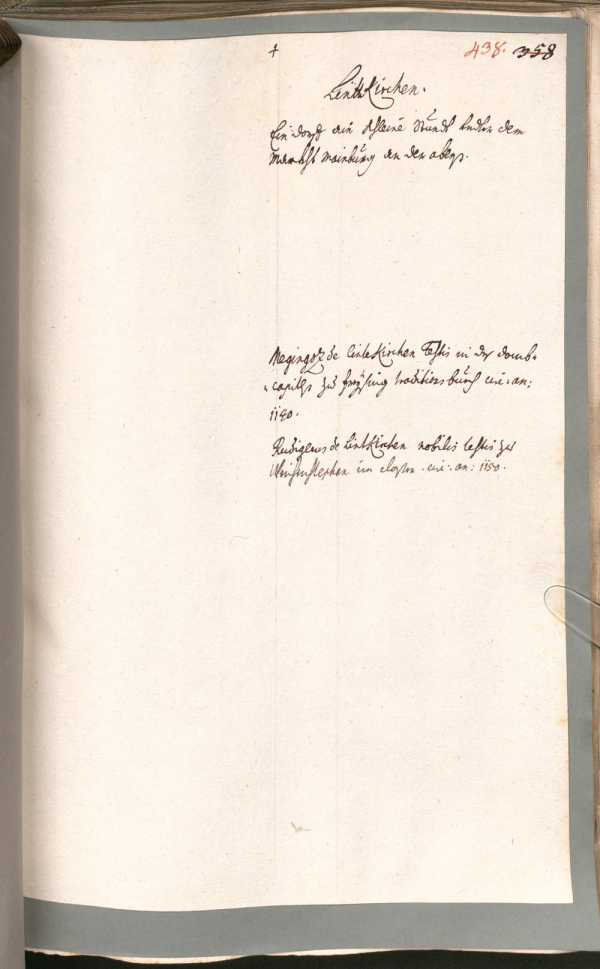 + 438. 358
Lintkirchen.
Ein dorf ain Khleine Stundt undter dem
Markht Mainburg an der abens.
Megingoz de lintekirchen Testis in der domb=
=capitls zu freysing traditions buech circ: an:
1190.
Rudigerus de Lintkirchen nobilis testis zu
Weichenstephan im closter circ: an: 1150.